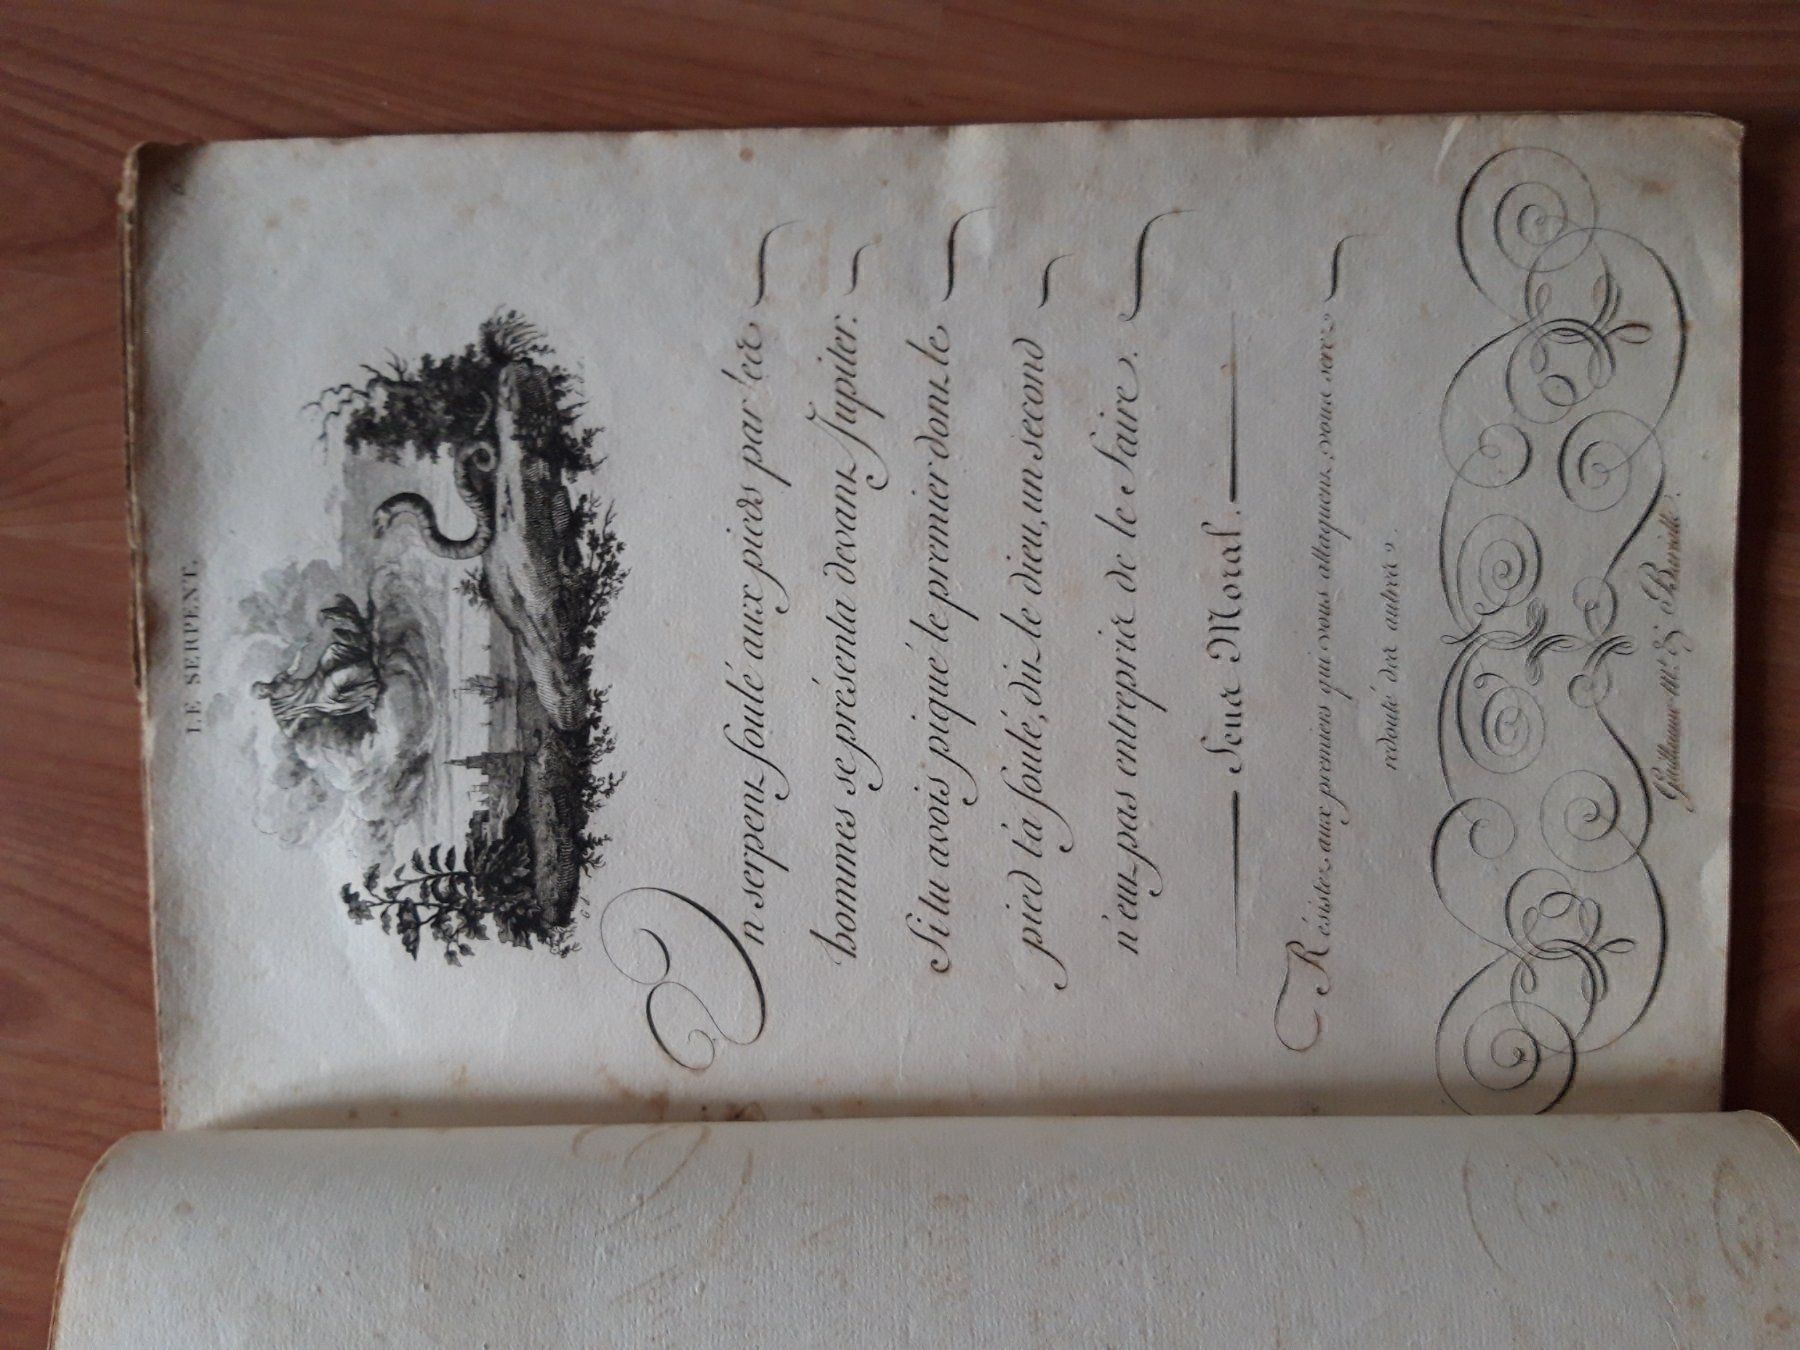 LE SERPENT.
Un serpent foulé aux pieds par les
hommes se présenta devant Jupiter.
Si tu avois piqué le premier dont le
pied t'a foulé, dit le dieu, un second
n'eut pas entrepris de le faire.
Sens Moral.
Résistez aux premiers qui vous attaquent, vous serez
redouté des autres.